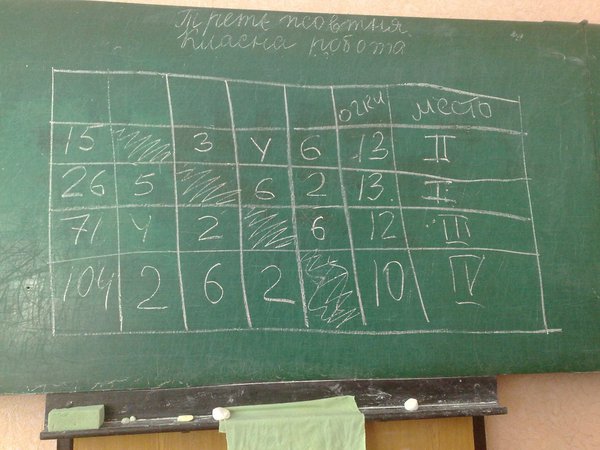 Третє жовтня
Класна робота
очки место
15 3 4 6 13 II
26 5 6 2 13. I
71 4 2 6 12 III
104 2 6 2 10 IV